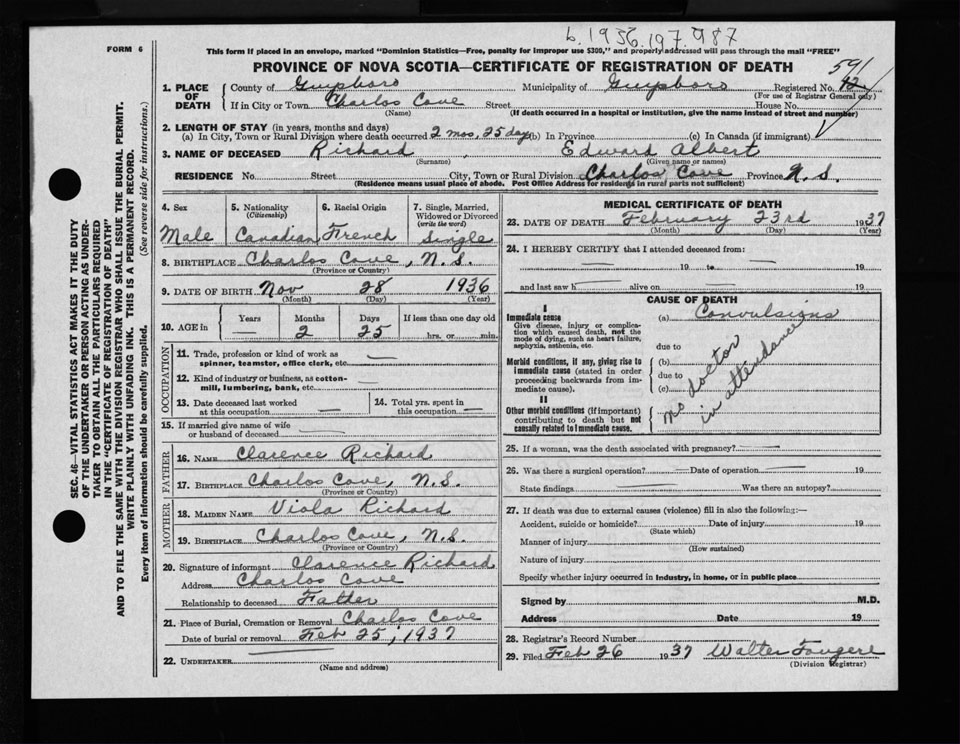 b. 1936.197.987
FORM 6
This form if placed in an envelope, marked "Dominion Statistics—Free, penalty for improper use $300," and properly addressed will pass through the mail "FREE"
PROVINCE OF NOVA SCOTIA—CERTIFICATE OF REGISTRATION OF DEATH
591
1. PLACE OF DEATH
County of Guysboro Municipality of Guysboro Registered No. 12
(For use of Registrar General only)
If in City or Town Charlos Cove Street House No.
(Name) (If death occurred in a hospital or institution, give the name instead of street and number)
2. LENGTH OF STAY (in years, months and days)
(a) In City, Town or Rural Division where death occurred 2 mos, 25 days (b) In Province (c) In Canada (if immigrant)
3. NAME OF DECEASED Richard , Edward Albert
(Surname) (Given name or names)
RESIDENCE No. Street City, Town or Rural Division Charlos Cove Province N.S.
(Residence means usual place of abode. Post Office Address for residents in rural parts not sufficient)
4. Sex
Male
5. Nationality
(Citizenship)
Canadian
6. Racial Origin
French
7. Single, Married, Widowed or Divorced
(write the word)
Single
8. BIRTHPLACE Charlos Cove, N.S.
(Province or Country)
9. DATE OF BIRTH Nov 28 1936
(Month) (Day) (Year)
10. AGE in
Years Months Days If less than one day old
— 2 25 hrs. or min.
OCCUPATION
11. Trade, profession or kind of work as
spinner, teamster, office clerk, etc. —
12. Kind of industry or business, as cotton-
mill, lumbering, bank, etc. —
13. Date deceased last worked
at this occupation —
14. Total yrs. spent in
this occupation —
15. If married give name of wife
or husband of deceased —
FATHER
16. NAME Clarence Richard
17. BIRTHPLACE Charlos Cove, N.S.
(Province or Country)
MOTHER
18. MAIDEN NAME Viola Richard
19. BIRTHPLACE Charlos Cove, N.S.
(Province or Country)
20. Signature of informant Clarence Richard
Address Charlos Cove
Relationship to deceased Father
21. Place of Burial, Cremation or Removal Charlos Cove
Date of burial or removal Feb 25, 1937
22. UNDERTAKER
(Name and address)
MEDICAL CERTIFICATE OF DEATH
23. DATE OF DEATH February 23rd 1937
(Month) (Day) (Year)
24. I HEREBY CERTIFY that I attended deceased from:
— 19 to — 19
and last saw h — alive on — 19
CAUSE OF DEATH
I
Immediate cause
Give disease, injury or complica-
tion which caused death, not the
mode of dying, such as heart failure,
asphyxia, asthenia, etc.
(a) Convulsions
due to
Morbid conditions, if any, giving rise to
immediate cause (stated in order
proceeding backwards from im-
mediate cause).
(b)
due to
(c)
no doctor
in attendance
II
Other morbid conditions (if important)
contributing to death but not
causally related to immediate cause.
25. If a woman, was the death associated with pregnancy? —
26. Was there a surgical operation? — Date of operation —
State findings Was there an autopsy?
27. If death was due to external causes (violence) fill in also the following:—
Accident, suicide or homicide? Date of injury 19
(State which)
Manner of injury
(How sustained)
Nature of injury
Specify whether injury occurred in industry, in home, or in public place
Signed by M.D.
Address Date 19
28. Registrar's Record Number
29. Filed Feb 26 1937 Walter Fougere
(Division Registrar)
SEC. 46—VITAL STATISTICS ACT MAKES IT THE DUTY
OF THE UNDERTAKER OR PERSON ACTING AS UNDER-
TAKER TO OBTAIN ALL THE PARTICULARS REQUIRED
IN THE "CERTIFICATE OF REGISTRATION OF DEATH"
AND TO FILE THE SAME WITH THE DIVISION REGISTRAR WHO SHALL ISSUE THE BURIAL PERMIT.
WRITE PLAINLY WITH UNFADING INK. THIS IS A PERMANENT RECORD.
Every item of information should be carefully supplied. (See reverse side for instructions.)